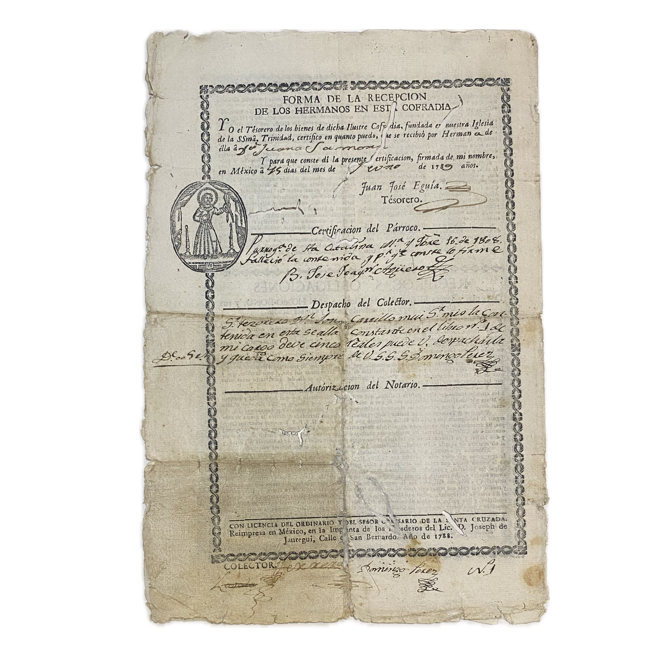 FORMA DE LA RECEPCION
DE LOS HERMANOS EN ESTA COFRADIA
Yo el Tesorero de los bienes de dicha Ilustre Cofradia, fundada en nuestra Iglesia
de la SSmâ. Trinidad, certifico en quanto puedo, que se recibió por Hermana de
ella á Juana
Y para que conste dí la presente certificacion, firmada de mi nombre,
en México á 15 dias del mes de Junio de 1789 años.
Juan José Eguía.
Tésorero.
Certificacion del Párroco.
de Sta Catalina y 16 de 1808.
Fallecio la contenida y pa. qe. conste lo firme
Br. Jose Joaqn.
Despacho del Colector.
mui Sr. mio la Con
tenida en este es Constante en el libro
mi cargo deve cinco reales puede V. despacharla
y queda como siempre de V. S. S. S. Domingo Perez
Autorizacion del Notario.
CON LICENCIA DEL ORDINARIO Y DEL SEÑOR COMISARIO DE LA SANTA CRUZADA:
Reimpresa en México, en la Imprenta de los Herederos del Lic. D. Joseph de
Jauregui, Calle de San Bernardo. Año de 1788.
COLECTOR, Domingo Perez N. 1